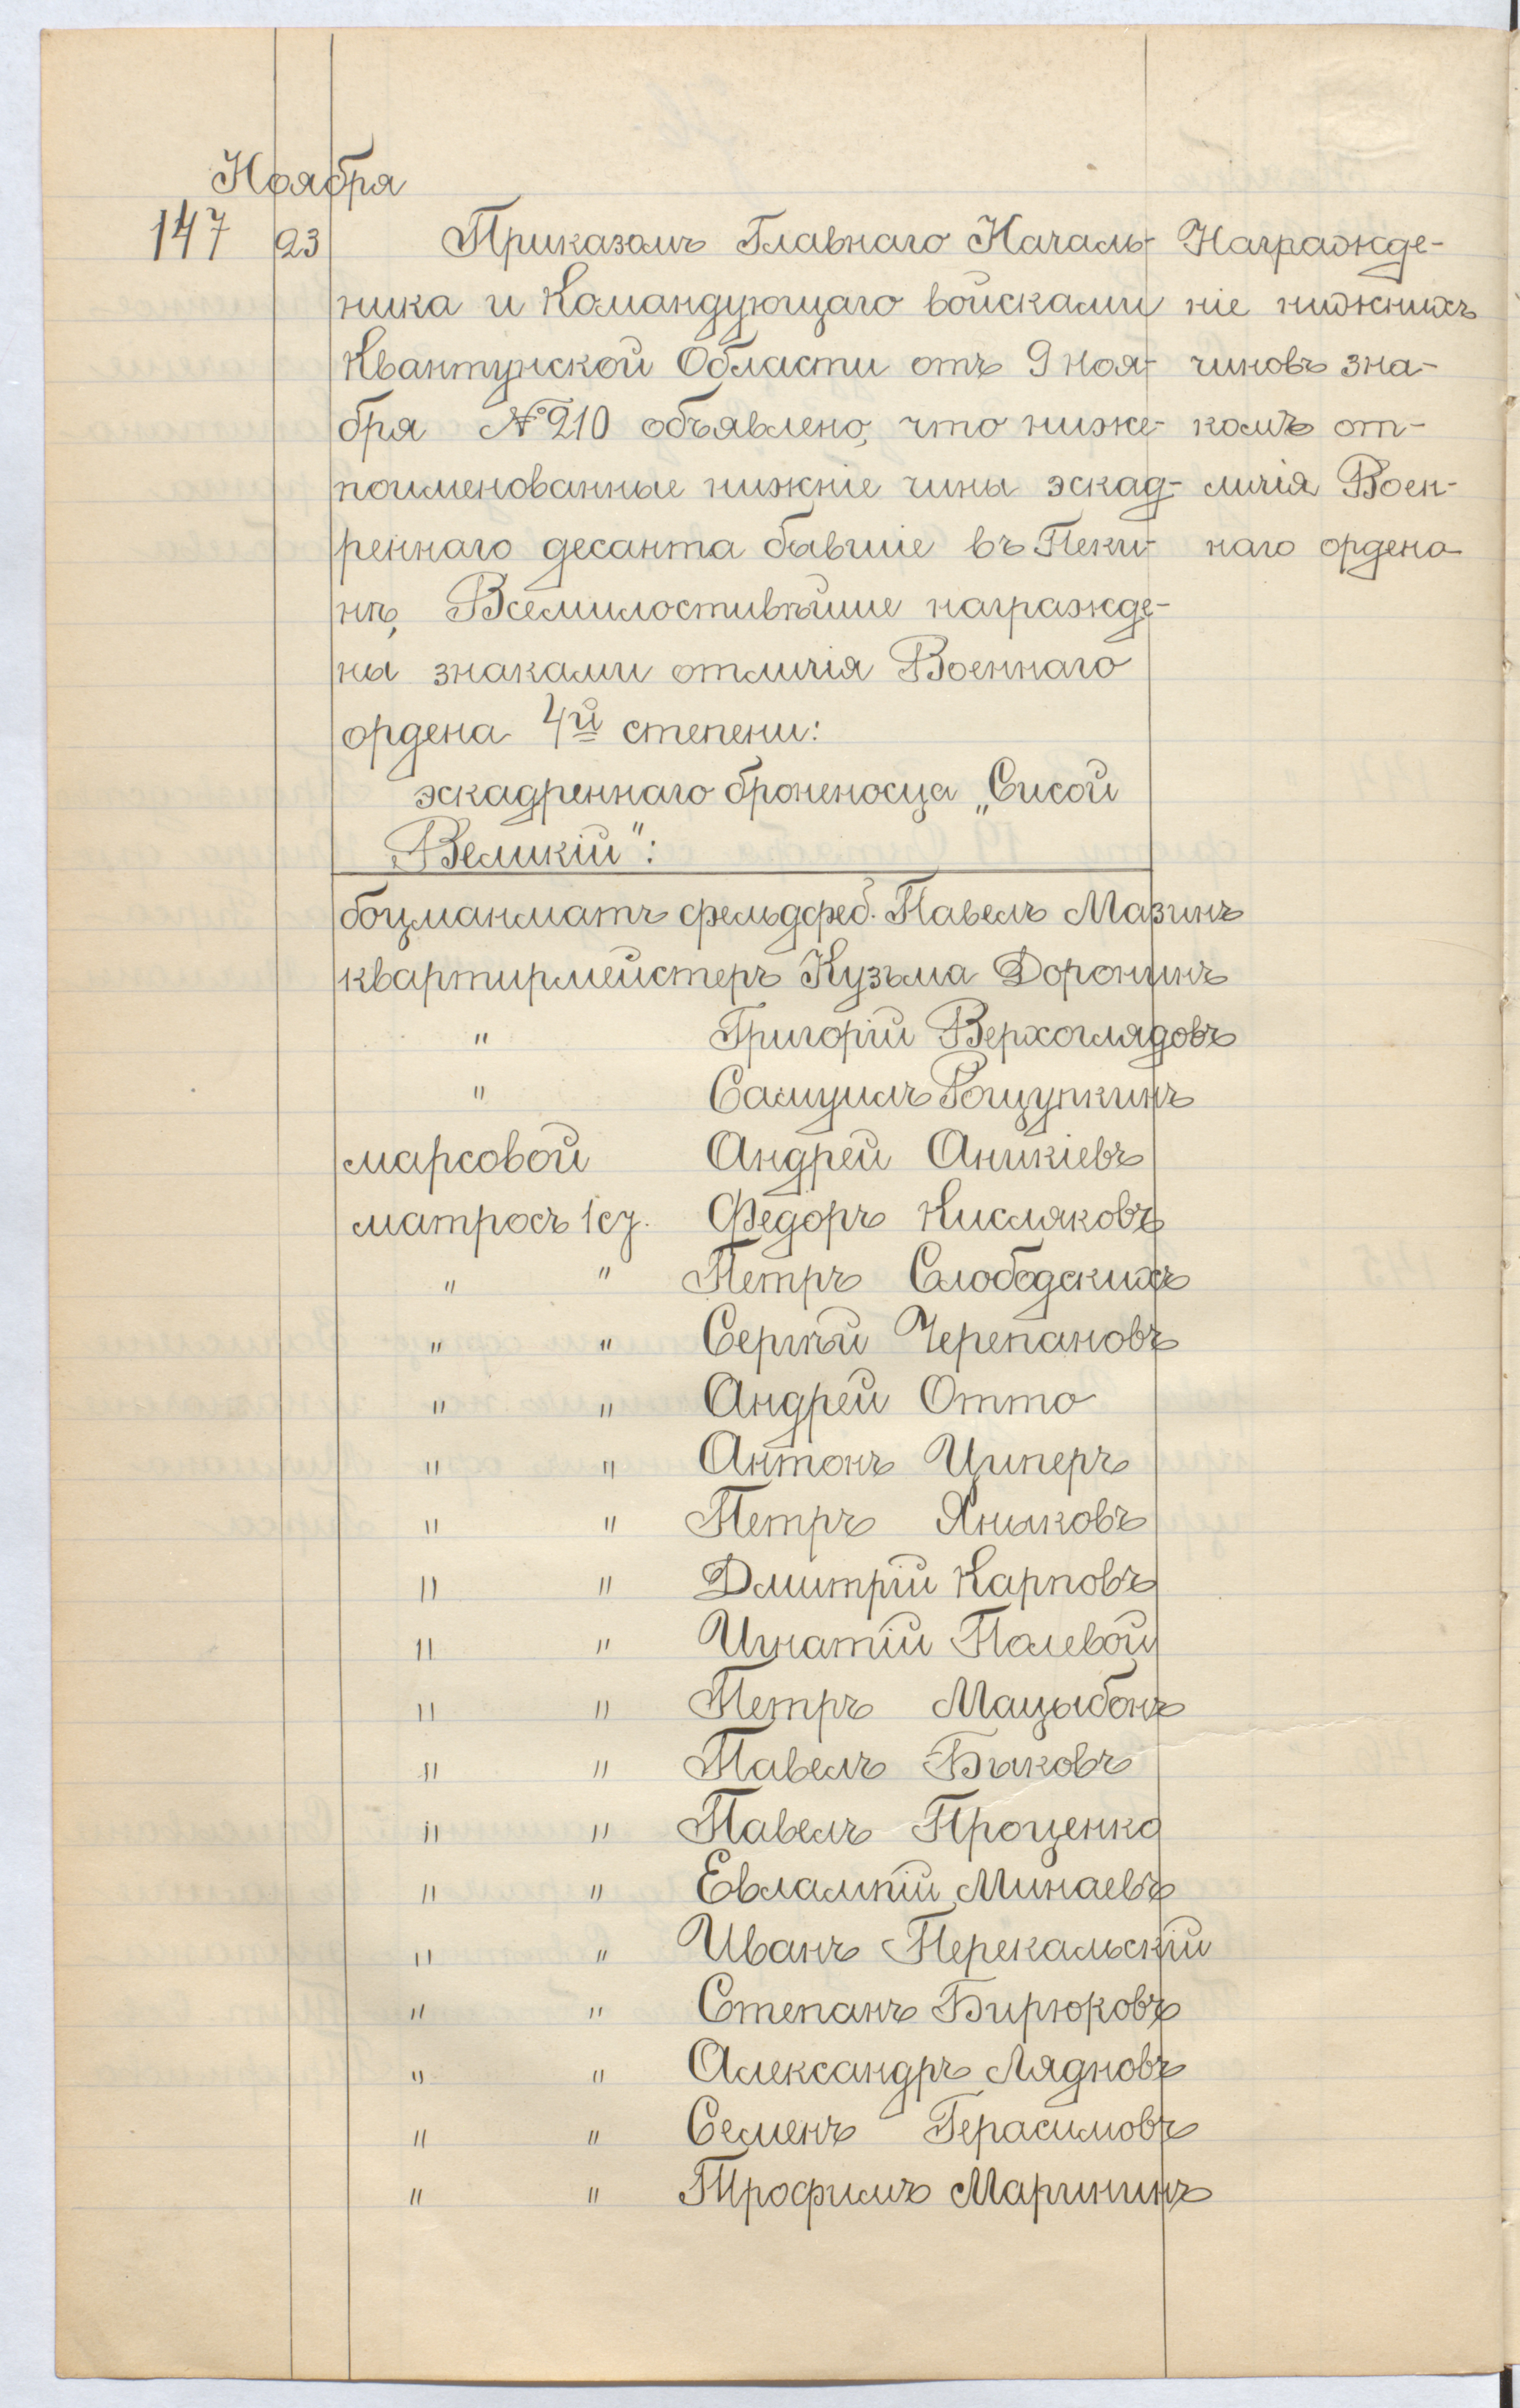 Ноября
147 23 Приказомъ Главнаго Началь- Награжде-
ника и Командующаго войсками ніе нижнихъ
Квантунской Области отъ 9 ноя- чиновъ зна-
бря № 210 объявлено, что ниже- комъ от-
поименованные нижніе чины эскад- личія Воен-
реннаго десанта бывшіе въ Пеки- наго ордена
нѣ, Всемилостивѣйше награжде-
ны знаками отличія Военнаго
ордена 4й степени:
эскадреннаго броненосца „Сисой
Великій":
боцманматъ фельдфеб. Павелъ Мазинъ
квартирмейстеръ Кузьма Доронинъ
" Григорій Верхоглядовъ
" Самуилъ Рощупкинъ
марсовой Андрей Аникіевъ
матросъ 1 ст. Федоръ Кисляковъ
" " Петръ Слободскихъ
" " Сергѣй Черепановъ
" " Андрей Отто
" " Антонъ Циперъ
" " Петръ Яныковъ
" " Дмитрій Карповъ
" " Игнатій Полевой
" " Петръ Мацыбонъ
" " Павелъ Быковъ
" " Павелъ Проценко
" " Евлампій Минаевъ
" " Иванъ Перекальскій
" " Степанъ Бирюковъ
" " Александръ Лядновъ
" " Семенъ Герасимовъ
" " Трофимъ Марининъ